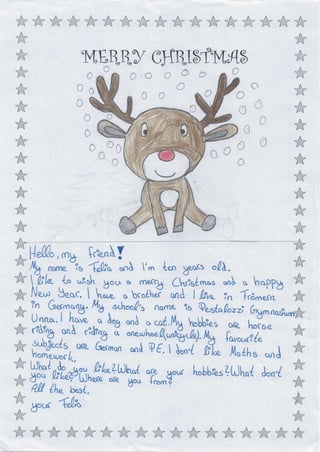 MERRY CHRISTMAS
Hello, my friend!
My name is Felia and I'm ten years old.
I like to wish you a merry Christmas and a happy
New Year. I have a brother and I live in Frömern
in Germany. My school's name is Pestalozzi Gymnasium
Unna. I have a dog and a cat. My hobbies are horse
riding and riding a onewheel(unicycle). My favourite
subjects are German and P.E. I don't like Maths and
homework.
What do you like? What are your hobbies? What don't
you like? Where are you from?
All the best,
your Felia